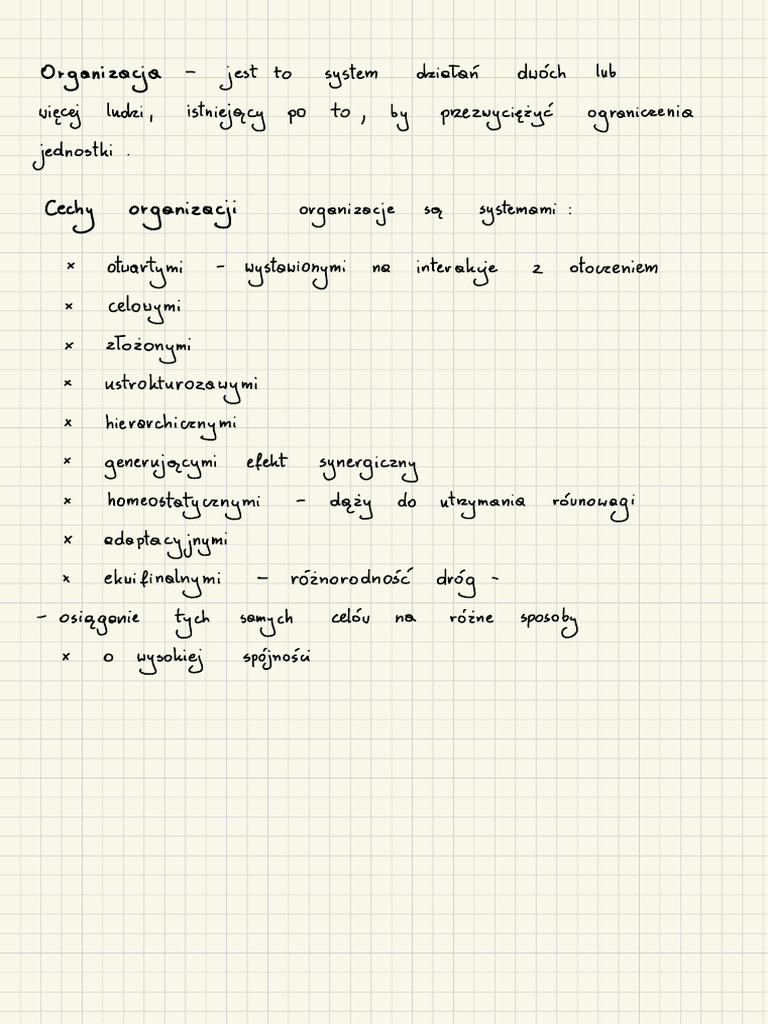 Organizacja - jest to system działań dwóch lub
więcej ludzi, istniejący po to, by przezwyciężyć ograniczenia
jednostki.
Cechy organizacji organizacje są systemami:
× otwartymi - wystawionymi na interakje z otoczeniem
× celowymi
× złożonymi
× ustrukturozawymi
× hierarchicznymi
× generującymi efekt synergiczny
× homeostatycznymi - dąży do utrzymania równowagi
× adaptacyjnymi
× ekuifinalnymi - różnorodność dróg -
- osiąganie tych samych celów na różne sposoby
× o wysokiej spójności